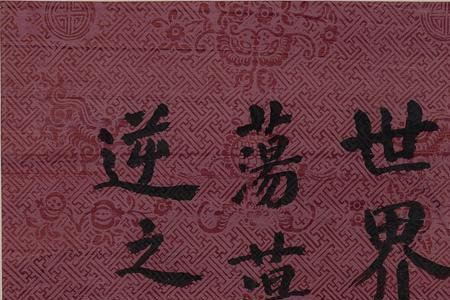 世界
蕩
逆之